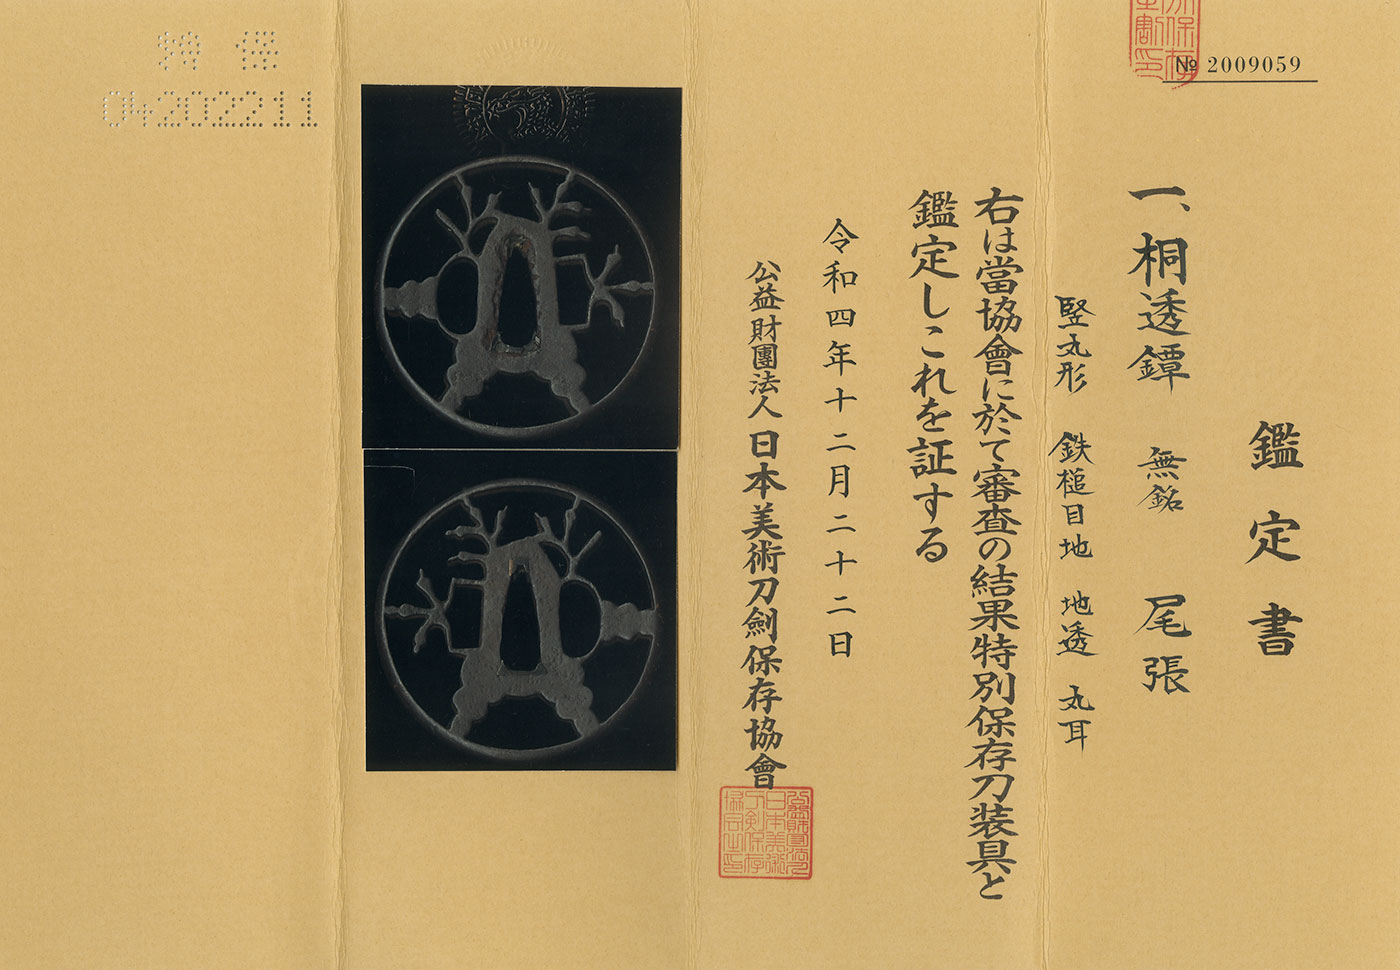 № 2009059
鑑定書
一、桐透鐔 無銘 尾張
竪丸形 鉄槌目地 地透 丸耳
右は當協會に於て審査の結果特別保存刀装具と
鑑定しこれを証する
令和四年十二月二十二日
公益財團法人 日本美術刀劍保存協會
特保
04202211